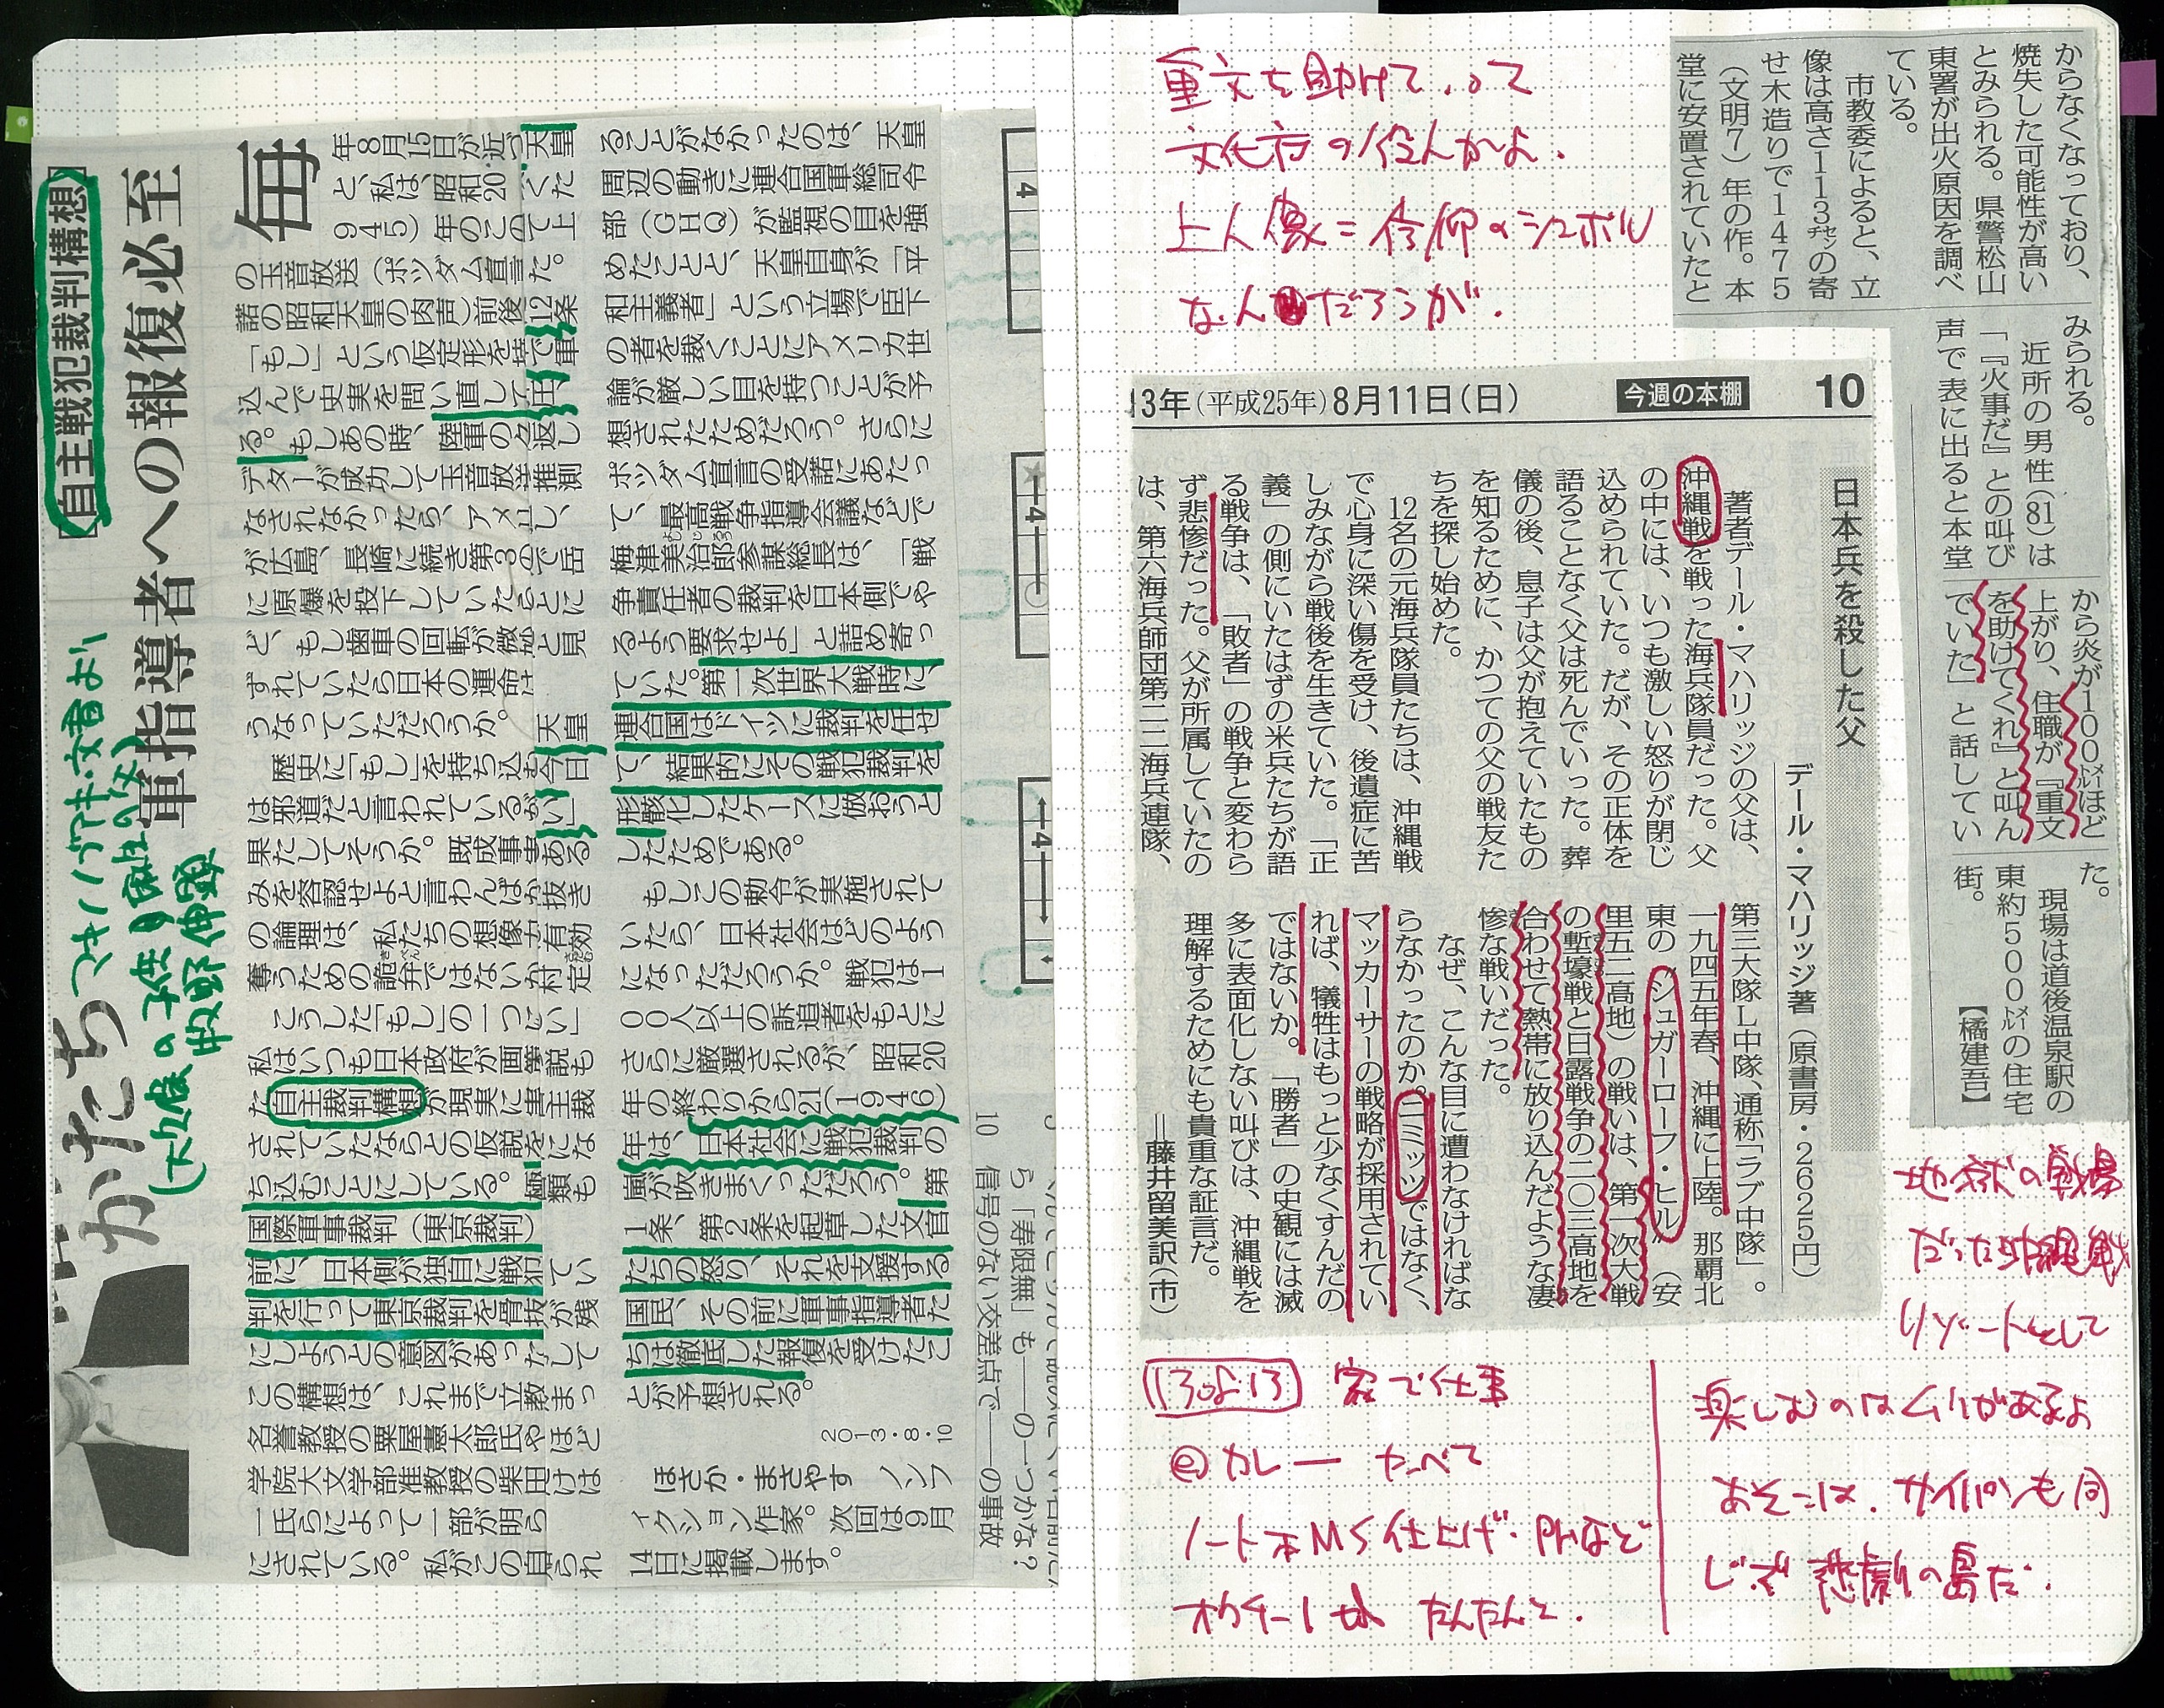 【自主戦犯裁判構想】
軍指導者への報復必至
かたち
マキノ ノブアキ文書より
毎
年8月15日が近づ天皇
と、私は、昭和20・くた
945）年のこので上
の玉音放送（ポツダム宣言た。
諾の昭和天皇の肉声）前後12条
「もし」という仮定形を持で軍
込んで史実を問い直して圧、
る。もしあの時、陸軍のク返し
デターが成功して玉音放送推測
なされなかったら、アメリし、
が広島、長崎に続き第3ので岳
に原爆を投下していたらとに
ど、もし歯車の回転が微妙と見
ずれていたら日本の運命は
うなっていただろうか。天皇
歴史に「もし」を持ち込む今日
は邪道だと言われているがい」
果たしてそうか。既成事実ある
みを容認せよと言わんばか抜き
の論理は、私たちの想像力有効
奪うための詭弁ではないか村定
こうした「もし」の一つにい」
私はいつも日本政府が画策説も
た自主裁判構想が現実に書主裁
されていたならとの仮説をにな
ち込むことにしている。極類も
国際軍事裁判（東京裁判）
前に、日本側が独自に戦犯てい
判を行って東京裁判を骨抜が残
にしようとの意図があったして
この構想は、これまで立教まっ
名誉教授の粟屋憲太郎氏やほど
学院大文学部准教授の柴田けは
一氏らによって一部が明ら
にされている。私がこの自られ
ることがなかったのは、天皇
周辺の動きに連合国軍総司令
部（GHQ）が監視の目を強
めたことと、天皇自身が「平
和主義者」という立場で臣下
の者を裁くことにアメリカ世
論が厳しい目を持つことが予
想されたためだろう。さらに
ポツダム宣言の受諾にあたっ
て、最高戦争指導会議などで
梅津美治郎参謀総長は、「戦
争責任者の裁判を日本側でや
るよう要求せよ」と詰め寄っ
ていた。第一次世界大戦時に、
連合国はドイツに裁判を任せ
て、結果的にその戦犯裁判を
形骸化したケースに倣おうと
したためである。
もしこの勅令が実施されて
いたら、日本社会はどのよう
になっただろうか。戦犯は1
00人以上の訴追者をもとに
さらに厳選されるが、昭和20
年の終わりから21（1946）
年は、日本社会に戦犯裁判の
嵐が吹きまくっただろう。第
1条、第2条を起草した文官
たちの怒り、それを支援する
国民、その前に軍事指導者た
ちは徹底した報復を受けたこ
とが予想される。
2013・8・10
ほさか・まさやす ノンフ
ィクション作家。次回は9月
14日に掲載します。
4
4
4
ら「寿限無」も──の一つかな？
10 信号のない交差点で──の事故
重文を助けて、って
文化庁の役人かよ。
上人像＝信仰のシンボル
な人だろうが。
からなくなっており、
焼失した可能性が高い
とみられる。県警松山
東署が出火原因を調べ
ている。
市教委によると、立
像は高さ113㌢の寄
せ木造りで1475
（文明7）年の作。本
堂に安置されていたと
みられる。
近所の男性（81）は
「『火事だ』との叫び
声で表に出ると本堂
から炎が100㍍ほど
上がり、住職が『重文
を助けてくれ』と叫ん
でいた」と話してい
た。
現場は道後温泉駅の
東約500㍍の住宅
街。【橘建吾】
13年（平成25年）8月11日（日） 今週の本棚 10
日本兵を殺した父
デール・マハリッジ著（原書房・2625円）
著者デール・マハリッジの父は、
沖縄戦を戦った海兵隊員だった。父
の中には、いつも激しい怒りが閉じ
込められていた。だが、その正体を
語ることなく父は死んでいった。葬
儀の後、息子は父が抱えていたもの
を知るために、かつての父の戦友た
ちを探し始めた。
12名の元海兵隊員たちは、沖縄戦
で心身に深い傷を受け、後遺症に苦
しみながら戦後を生きていた。「正
義」の側にいたはずの米兵たちが語
る戦争は、「敗者」の戦争と変わら
ず悲惨だった。父が所属していたの
は、第六海兵師団第二二海兵連隊、
第三大隊L中隊、通称「ラブ中隊」。
一九四五年春、沖縄に上陸。那覇北
東の〝シュガーローフ・ヒル〟（安
里五二高地）の戦いは、第一次大戦
の塹壕戦と日露戦争の二〇三高地を
合わせて熱帯に放り込んだような凄
惨な戦いだった。
なぜ、こんな目に遭わなければな
らなかったのか。ニミッツではなく、
マッカーサーの戦略が採用されてい
れば、犠牲はもっと少なくすんだの
ではないか。「勝者」の史観には滅
多に表面化しない叫びは、沖縄戦を
理解するためにも貴重な証言だ。
＝藤井留美訳（市）
家で仕事
カレー たべて
ノート本MS仕上げ・
たんたんと。
地獄の戦場
だった沖縄戦
リゾートとして
楽しむのはムリがあるよ
あそこは。サイパンも同
じで悲劇の島だ。